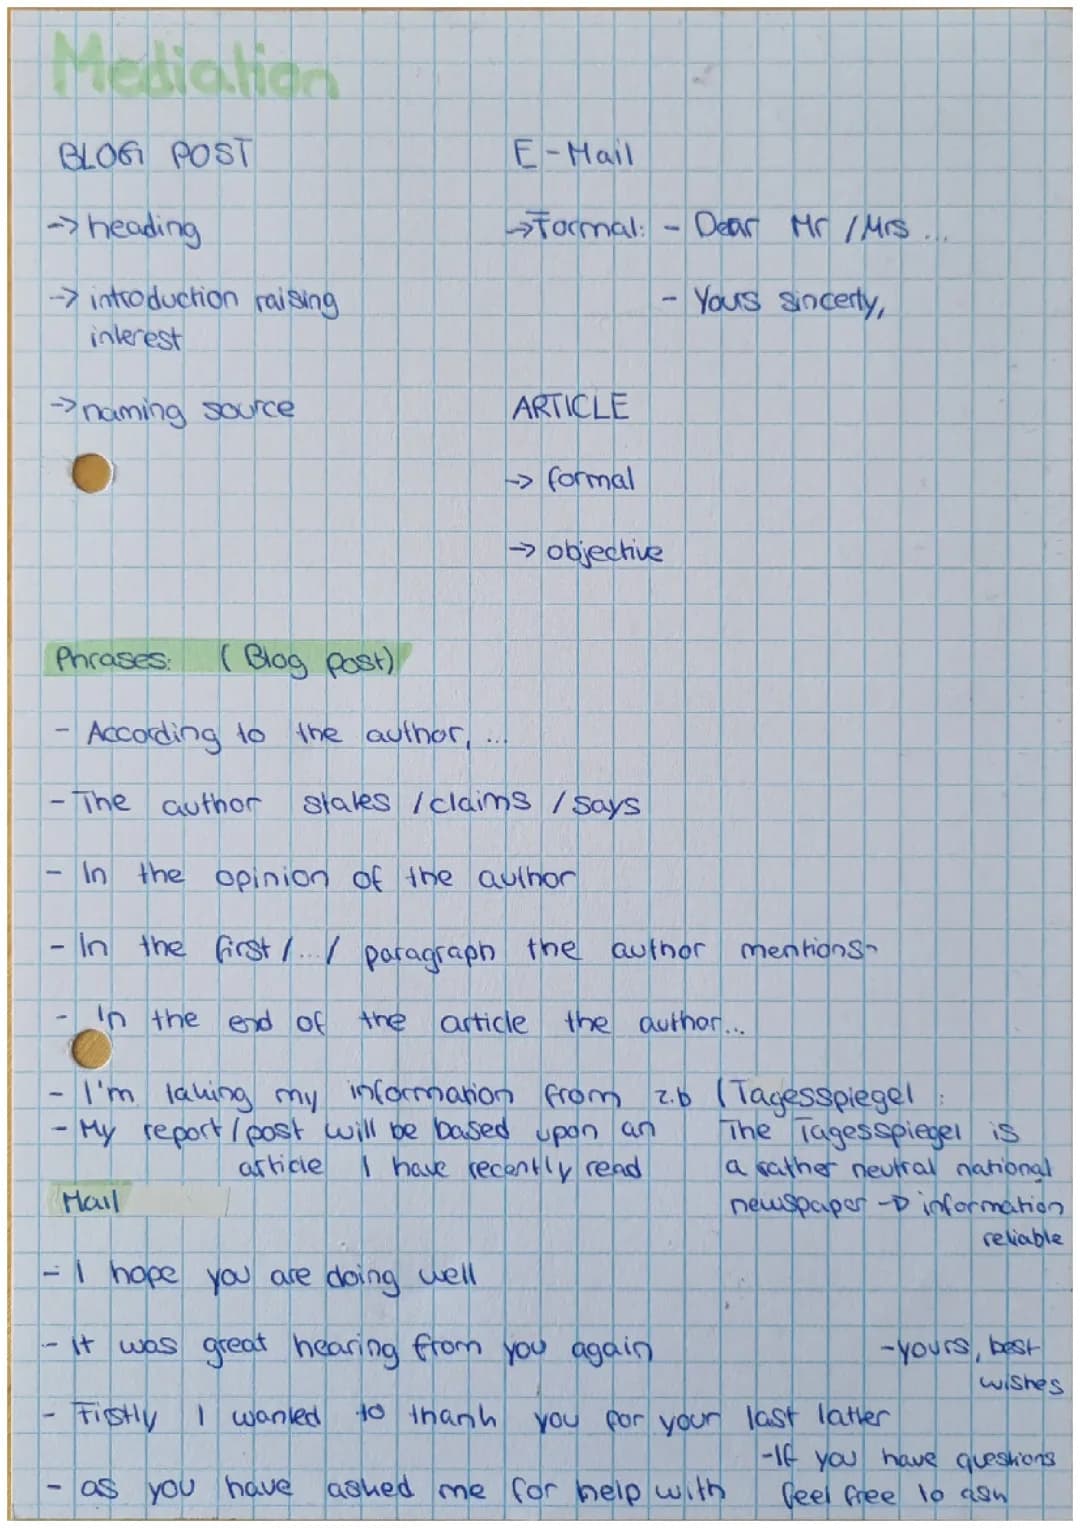 Mediation
BLOG POST
-> heading
-> introduction raising
interest
-> naming source
E-Mail
-> Formal: - Dear Mr / Mrs ...
- Yours sincerty,
ARTICLE
-> formal
-> objective
Phrases: ( Blog post)
- According to the author, ...
- The author states / claims / says
- In the opinion of the author
- In the first / ... / paragraph the author mentions
- In the end of the article the author...
- I'm taking my information from z.b (Tagesspiegel :
- My report / post will be based upon an
article I have recently read
The Tagesspiegel is
a rather neutral national
newspaper -> information
reliable
Mail
- I hope you are doing well
- It was great hearing from you again
- yours, best
wishes
- Firstly I wanted to thank you for your last latter
- If you have questions
feel free to ask
- as you have asked me for help with